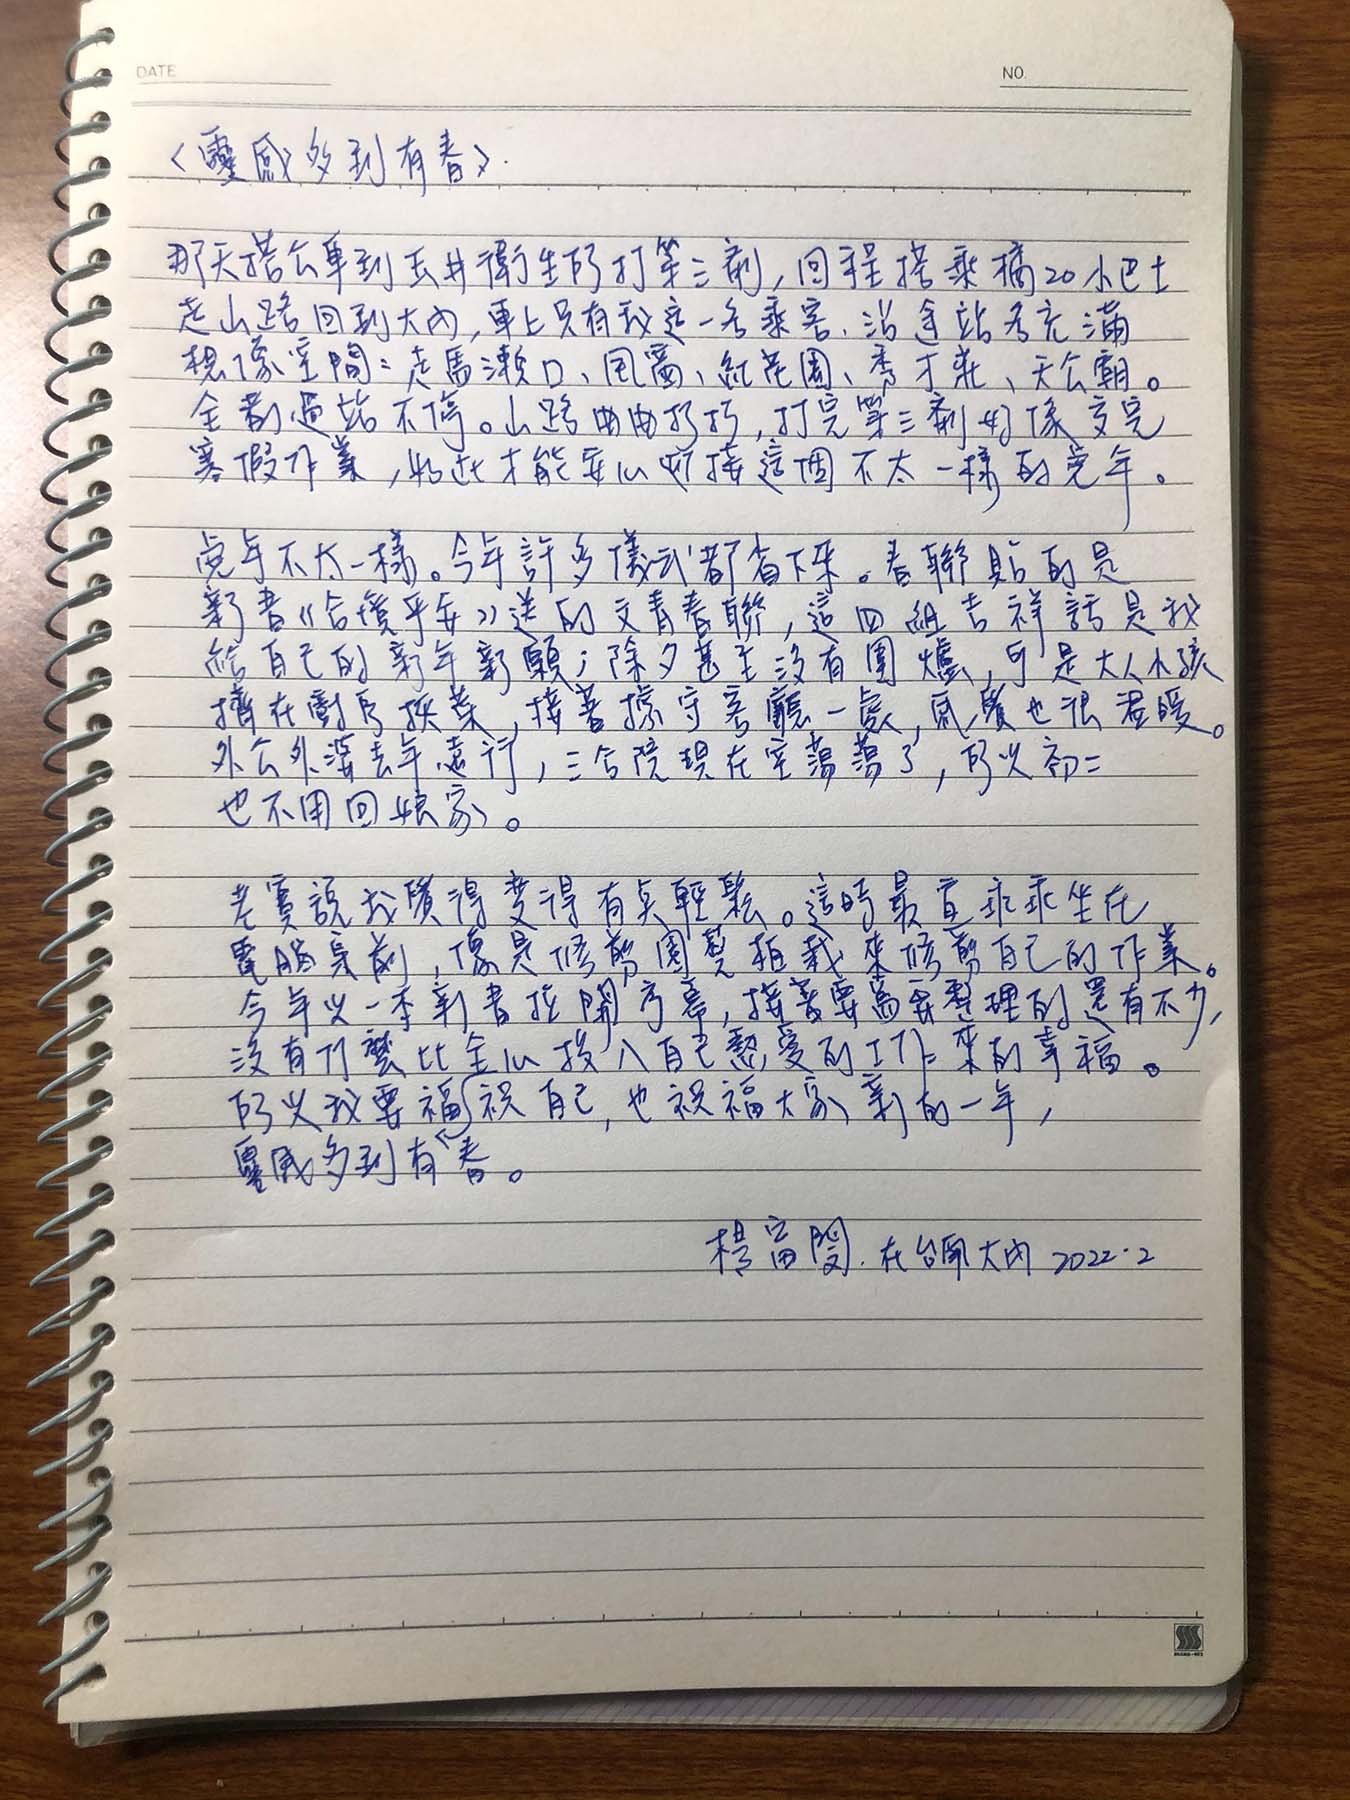 DATE
NO.
〈靈感多到有春〉.
那天搭公車到玉井衛生所打第三劑，回程搭乘橘20小巴士
走山路回到大內，車上只有我這一名乘客．沿途站名充滿
想像空間：走馬瀨口、風窗、紅花園、秀才莊、天公廟。
全劑過站不停。山路曲曲折折，打完第三劑好像交完
寒假作業，如此才能安心迎接這個不太一樣的虎年。
虎年不太一樣。今年許多儀式都省下來。春聯貼的是
新書《合境平安》送的文青春聯，這四組吉祥話是我
給自己的新年新願；除夕甚至沒有圍爐，可是大人小孩
擠在廚房挾菜，接著據守客廳一處，感覺也很溫暖。
外公外婆去年遠行，三合院現在空蕩蕩了，所以初二
也不用回娘家。
老實說我覺得變得有點輕鬆。這時最宜乖乖坐在
電腦桌前，像是修剪園藝植栽來修剪自己的作業。
今年以一本新書拉開序幕，接著要寫要整理的還有不少，
沒有什麼比全心投入自己熱愛的工作來的幸福。
所以我要福祝自己，也祝福大家新的一年，
靈感多到有春。
楊富閔．在台南大內 2022.2